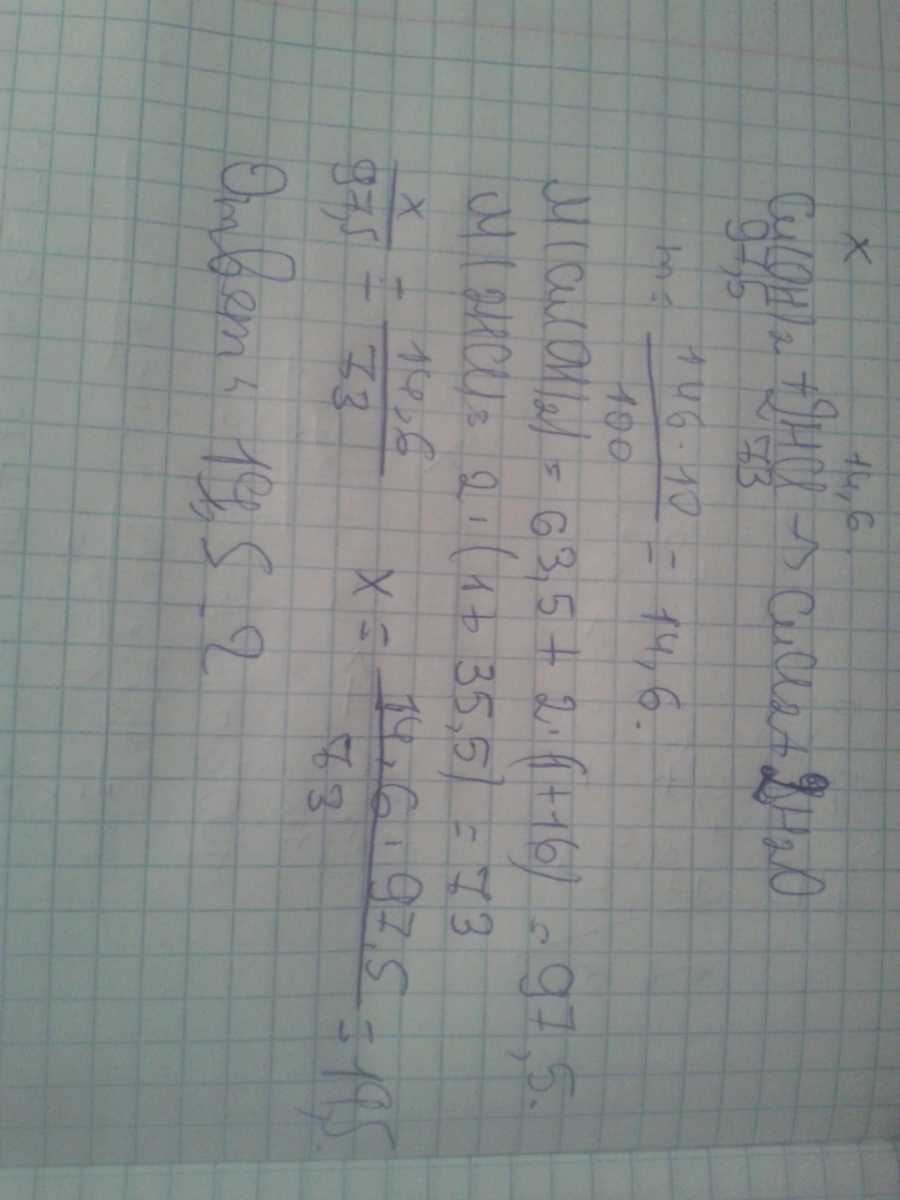 x 14,6.
Cu(OH)2 + 2HCl → CuCl2 + 2H2O
97,5 2 73
m = 146·10 / 100 = 14,6.
M(Cu(OH)2) = 63,5 + 2·(1+16) = 97,5.
M(2HCl) = 2·(1+35,5) = 73
x / 97,5 = 14,6 / 73 x = 14,6·97,5 / 73 = 19,5
Ответ: 19,5 г